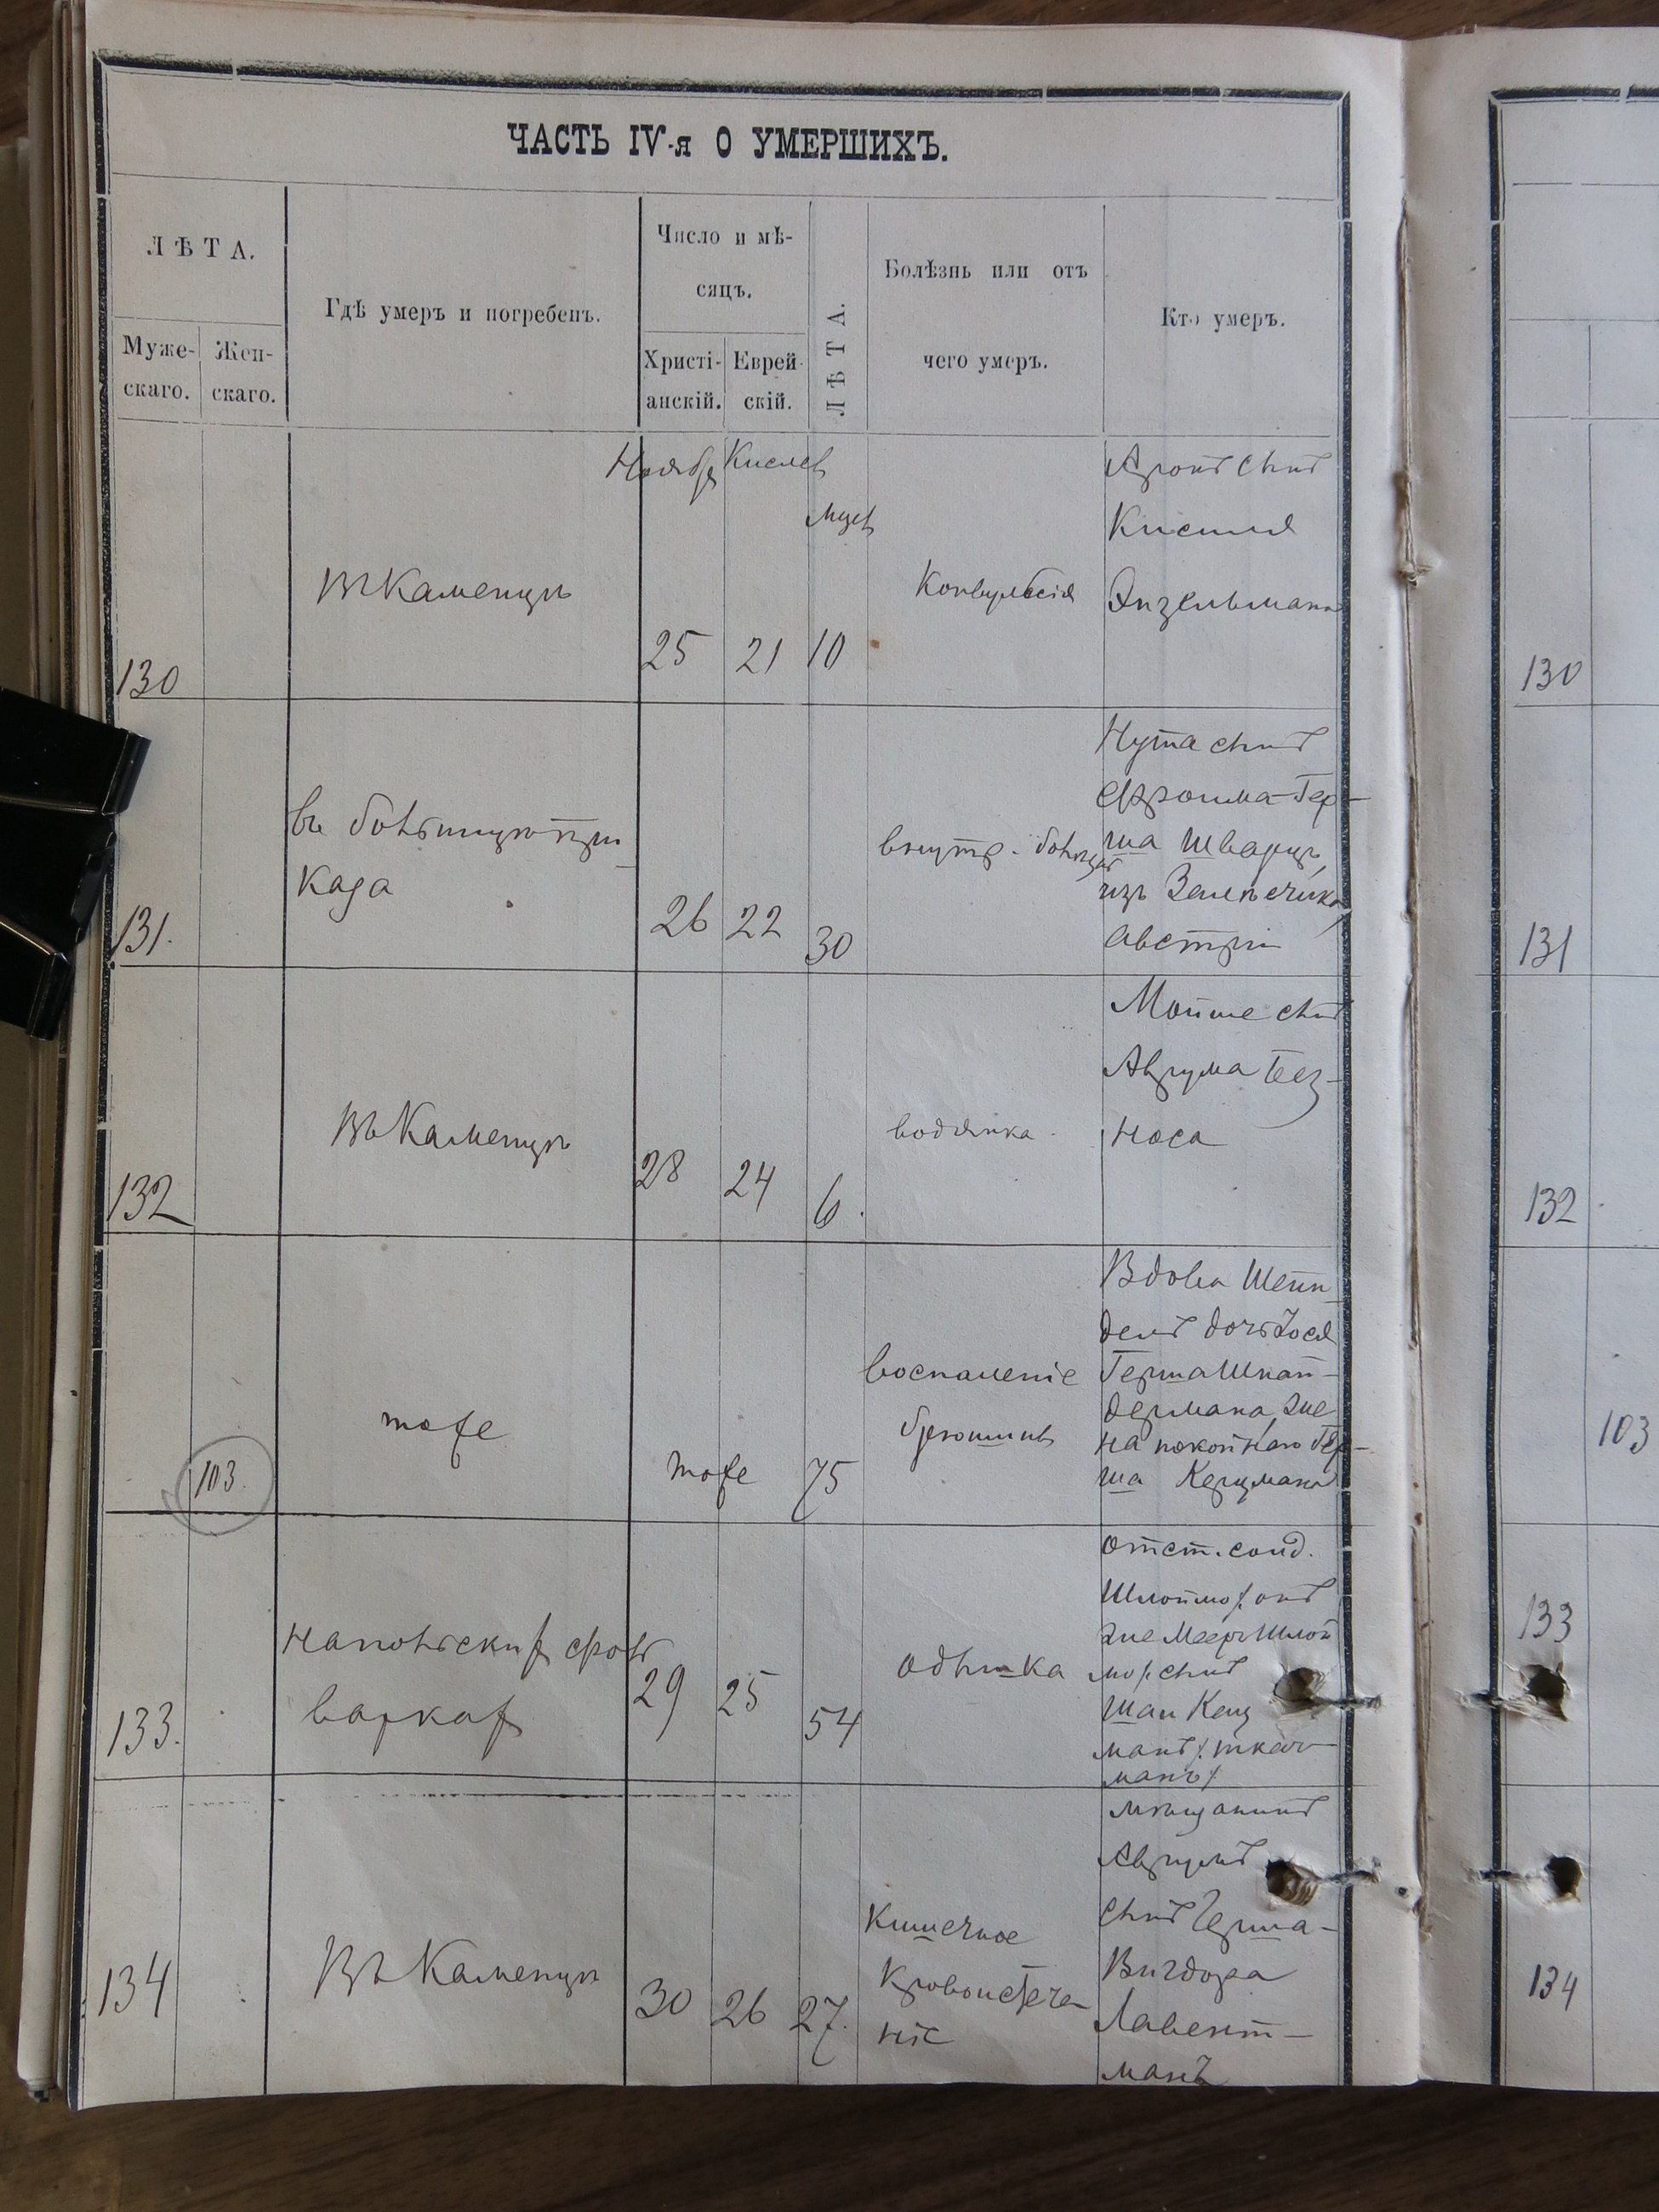 ЧАСТЬ IV-я О УМЕРШИХЪ.
ЛѢТА.
Муже-
скаго.
Жен-
скаго.
Гдѣ умеръ и погребенъ.
Число и мѣ-
сяцъ.
Христі-
анскій.
Еврей-
скій.
ЛѢТА.
Болѣзнь или отъ
чего умеръ.
Кто умеръ.
130
Въ Каменцѣ
Ноябр Кислев
25 21
Мцев
10
Конвульсія
Аронъ сынъ
Кисиля
Энзельмана
131.
въ больницѣ при-
каза
26 22 30
внутр. болѣзнь
Нута сынъ
Ефроима-Гер-
ша Шварцъ,
изъ Залещика
Австріи
132
Въ Каменцѣ
28 24 6.
водянка
Мошше сынъ
Аврума Без-
носа
103.
тоже
тоже 75
воспаленіе
брюшины
Вдова Шейн-
дель дочь Іося
Герша Шнай-
дермана, же
на покойнаго Гер-
ша Керцмана
133.
на польских фоль
варках
29 25
54
одышка
отст. солд.
Шлоймо /: онъ
же Мееръ Шлой
мо /: сынъ
134
Въ Каменцѣ
30 26 27.
Кишечное
Кровоистече-
ніе
мѣщанинъ
Аврумъ
сынъ Герша-
Вигдора
Лавент-
манъ
130
131
132
103
133
134